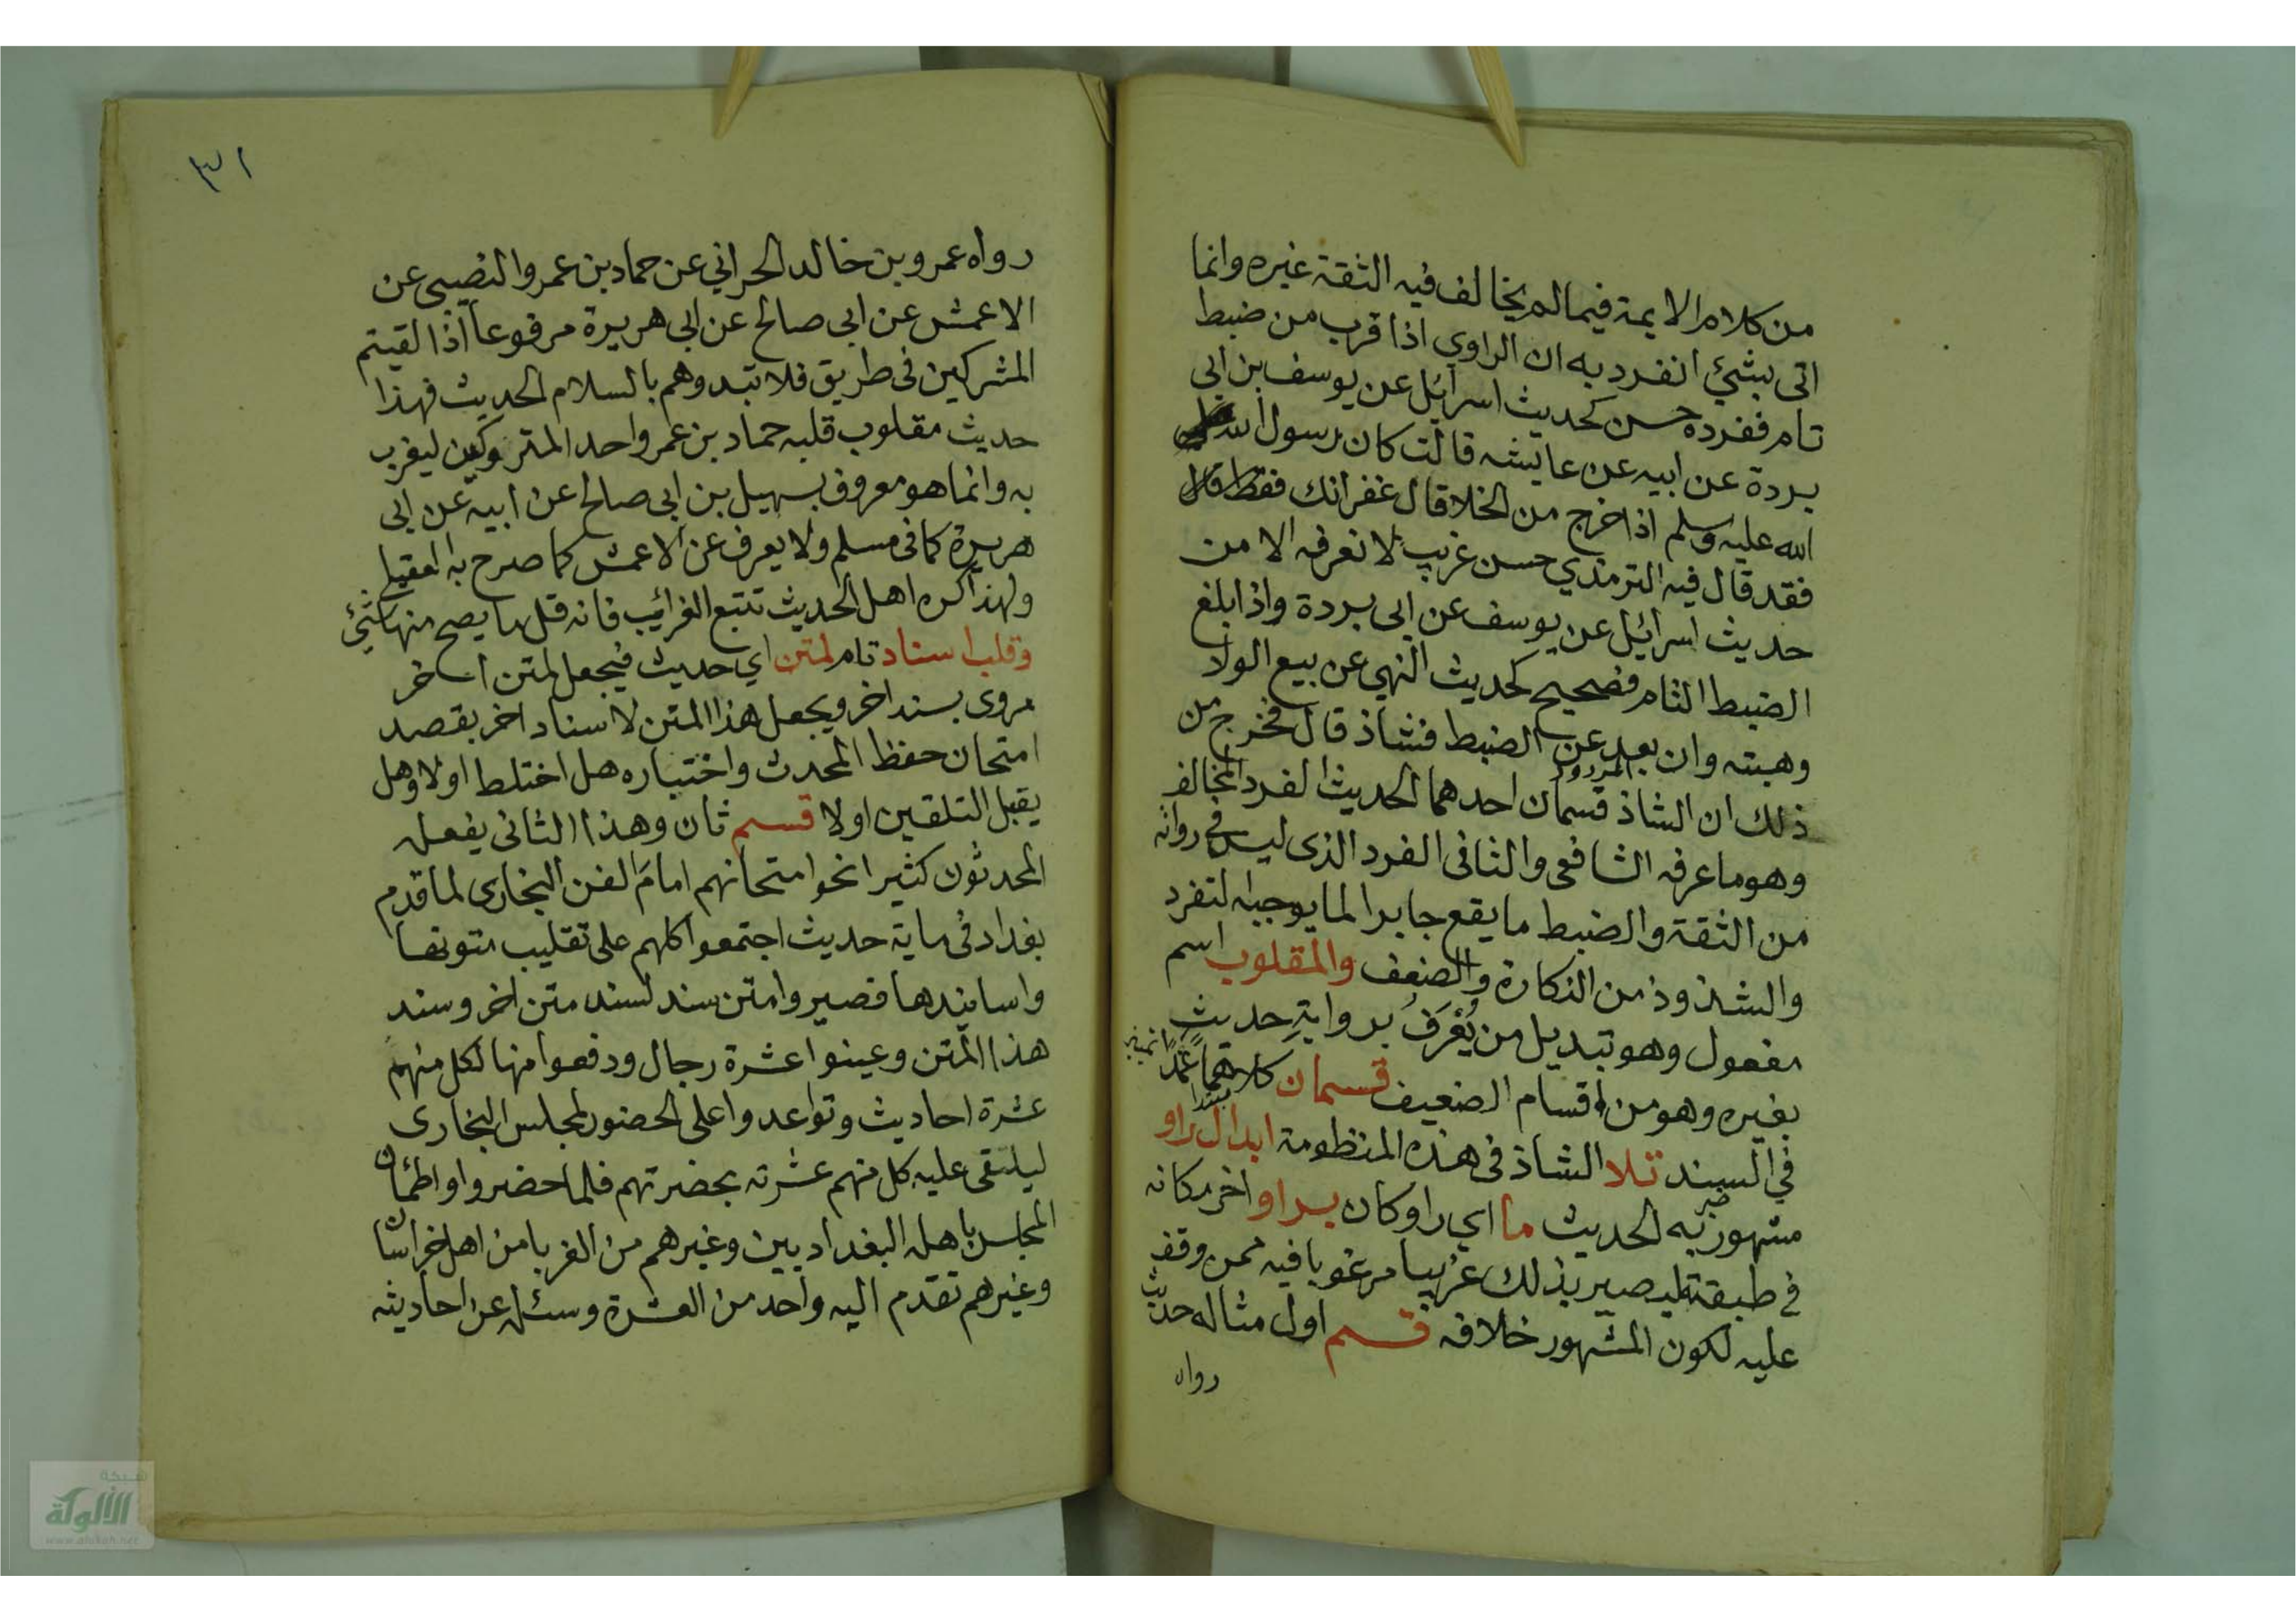 من كلام الايمة فيما لم يخالف فيه الثقة غيره وانما
اتى بشئ انفرد به ان الراوي اذا قرب من ضبط
تام ففرده حسن كحديث اسرائل عن يوسف بن ابى
بردة عن ابيه عن عايشه قالت كان رسول الله صلى
الله عليه وسلم اذا خرج من الخلا قال غفرانك فقط
فقد قال فيه الترمذي حسن غريب لا نعرفه الا من
حديث اسرائيل عن يوسف عن ابى بردة واذا بلغ
الضبط التام فصحيح كحديث النهي عن بيع الولا
وهبته وان بعد عن الضبط فشاذ قال فخرج من
ذلك ان الشاذ المردود قسمان احدهما الحديث الفرد المخالف
وهو ما عرفه الشافعى والثانى الفرد الذى ليس في رواته
من الثقة والضبط ما يقع جابرا لما يوجبه التفرد
والشذوذ من النكارة والضعف والمقلوب اسم
مفعول وهو تبديل من يُعْرَفُ بروايةِ حديثٍ
بغيره وهو من اقسام الضعيف قسمان كلاهما عمدا
في السند تلا الشاذ فى هذه المنظومة مبتدا ابدال راو
مشهور به الحديث خبر ما اي راو كان براو اخر مكانه
في طبقته ليصير بذلك غريبا مرغوبا فيه ممن وقف
عليه لكون المشهور خلافه قسم اول مثاله حديث
رواه
٣١
رواه عمرو بن خالد الحراني عن حماد بن عمرو النصيبى عن
الاعمش عن ابى صالح عن ابى هريرة مرفوعا اذا لقيتم
المشركين فى طريق فلا تبدوهم بالسلام الحديث فهذا
حديث مقلوب قلبه حماد بن عمر واحد المتروكين ليغرب
به وانما هو معروف بسهيل بن ابى صالح عن ابيه عن ابى
هريرة كما فى مسلم ولا يعرف عن الاعمش كما صرح به العقيلي
ولهذا كره اهل الحديث تتبع الغرائب فانه قل ما يصح منها شئ
وقلب اسناد تام لمتن اي حديث فيجعل لمتن اخر
مروى بسند اخر ويجعل هذا المتن لاسناد اخر بقصد
امتحان حفظ المحدث واختباره هل اختلط اولا وهل
يقبل التلقين اولا قسم ثان وهذا الثانى يفعله
المحدثون كثيرا نحو امتحانهم امامَ الفن البخارى لما قدم
بغداد فى ماية حديث اجتمعوا كلهم على تقليب متونها
واسانيدها فصيروا متن سند لسند متن اخر وسند
هذا المتن وعينوا عشرة رجال ودفعوا منها لكل منهم
عشرة احاديث وتواعدوا على الحضور لمجلس البخارى
ليلتقى عليه كل منهم عشرته بحضرتهم فلما حضروا واطمان
المجلس باهله البغداديين وغيرهم من الغربا من اهل خراسان
وغيرهم تقدم اليه واحد من العشرة وسئله عن احاديثه
شبكة
الألوكة
www.alukah.net